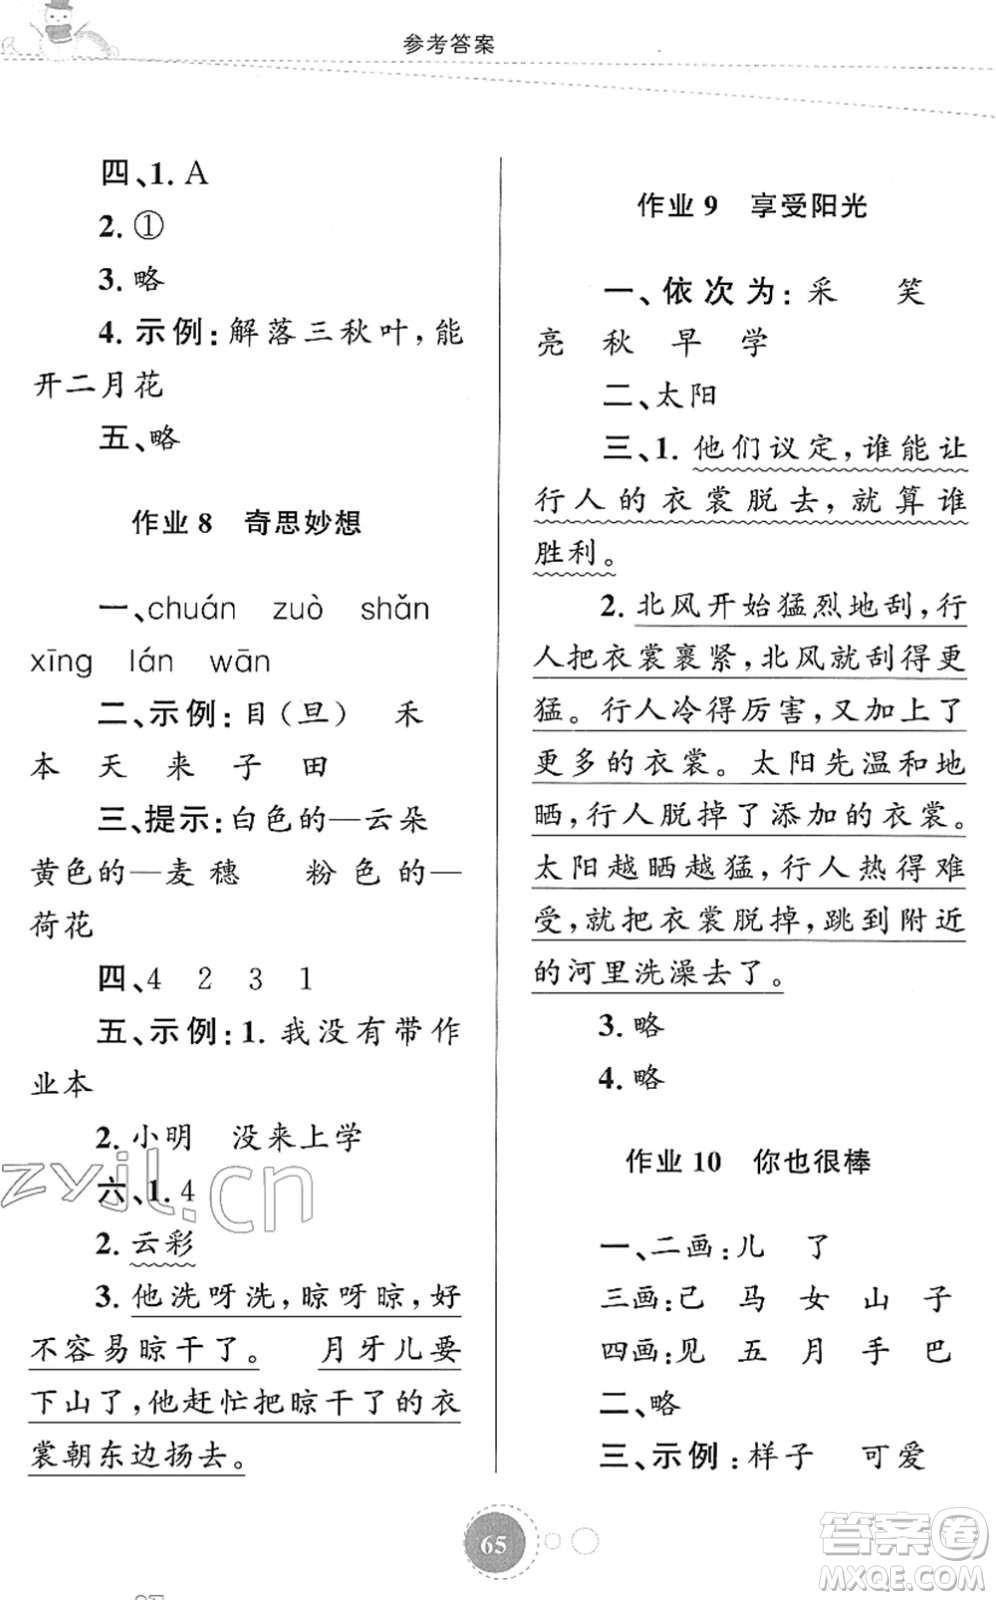 参考答案
四、1. A
2. ①
3. 略
4. 示例:解落三秋叶,能
开二月花
五、略
作业 8 奇思妙想
一、chuán zuò shǎn
xīng lán wān
二、示例:目(旦) 禾
本 天 来 子 田
三、提示:白色的—云朵
黄色的—麦穗 粉色的—
荷花
四、4 2 3 1
五、示例:1. 我没有带作
业本
2. 小明 没来上学
六、1. 4
2. 云彩
3. 他洗呀洗,晾呀晾,好
不容易晾干了。 月牙儿要
下山了,他赶忙把晾干了的衣
裳朝东边扬去。
作业 9 享受阳光
一、依次为:采 笑
亮 秋 早 学
二、太阳
三、1. 他们议定,谁能让
行人的衣裳脱去,就算谁
胜利。
2. 北风开始猛烈地刮,行
人把衣裳裹紧,北风就刮得更
猛。行人冷得厉害,又加上了
更多的衣裳。太阳先温和地
晒,行人脱掉了添加的衣裳。
太阳越晒越猛,行人热得难
受,就把衣裳脱掉,跳到附近
的河里洗澡去了。
3. 略
4. 略
作业 10 你也很棒
一、二画:儿 了
三画:己 马 女 山 子
四画:见 五 月 手 巴
二、略
三、示例:样子 可爱
65
zyjl.cn
答案圈
MXQE.COM